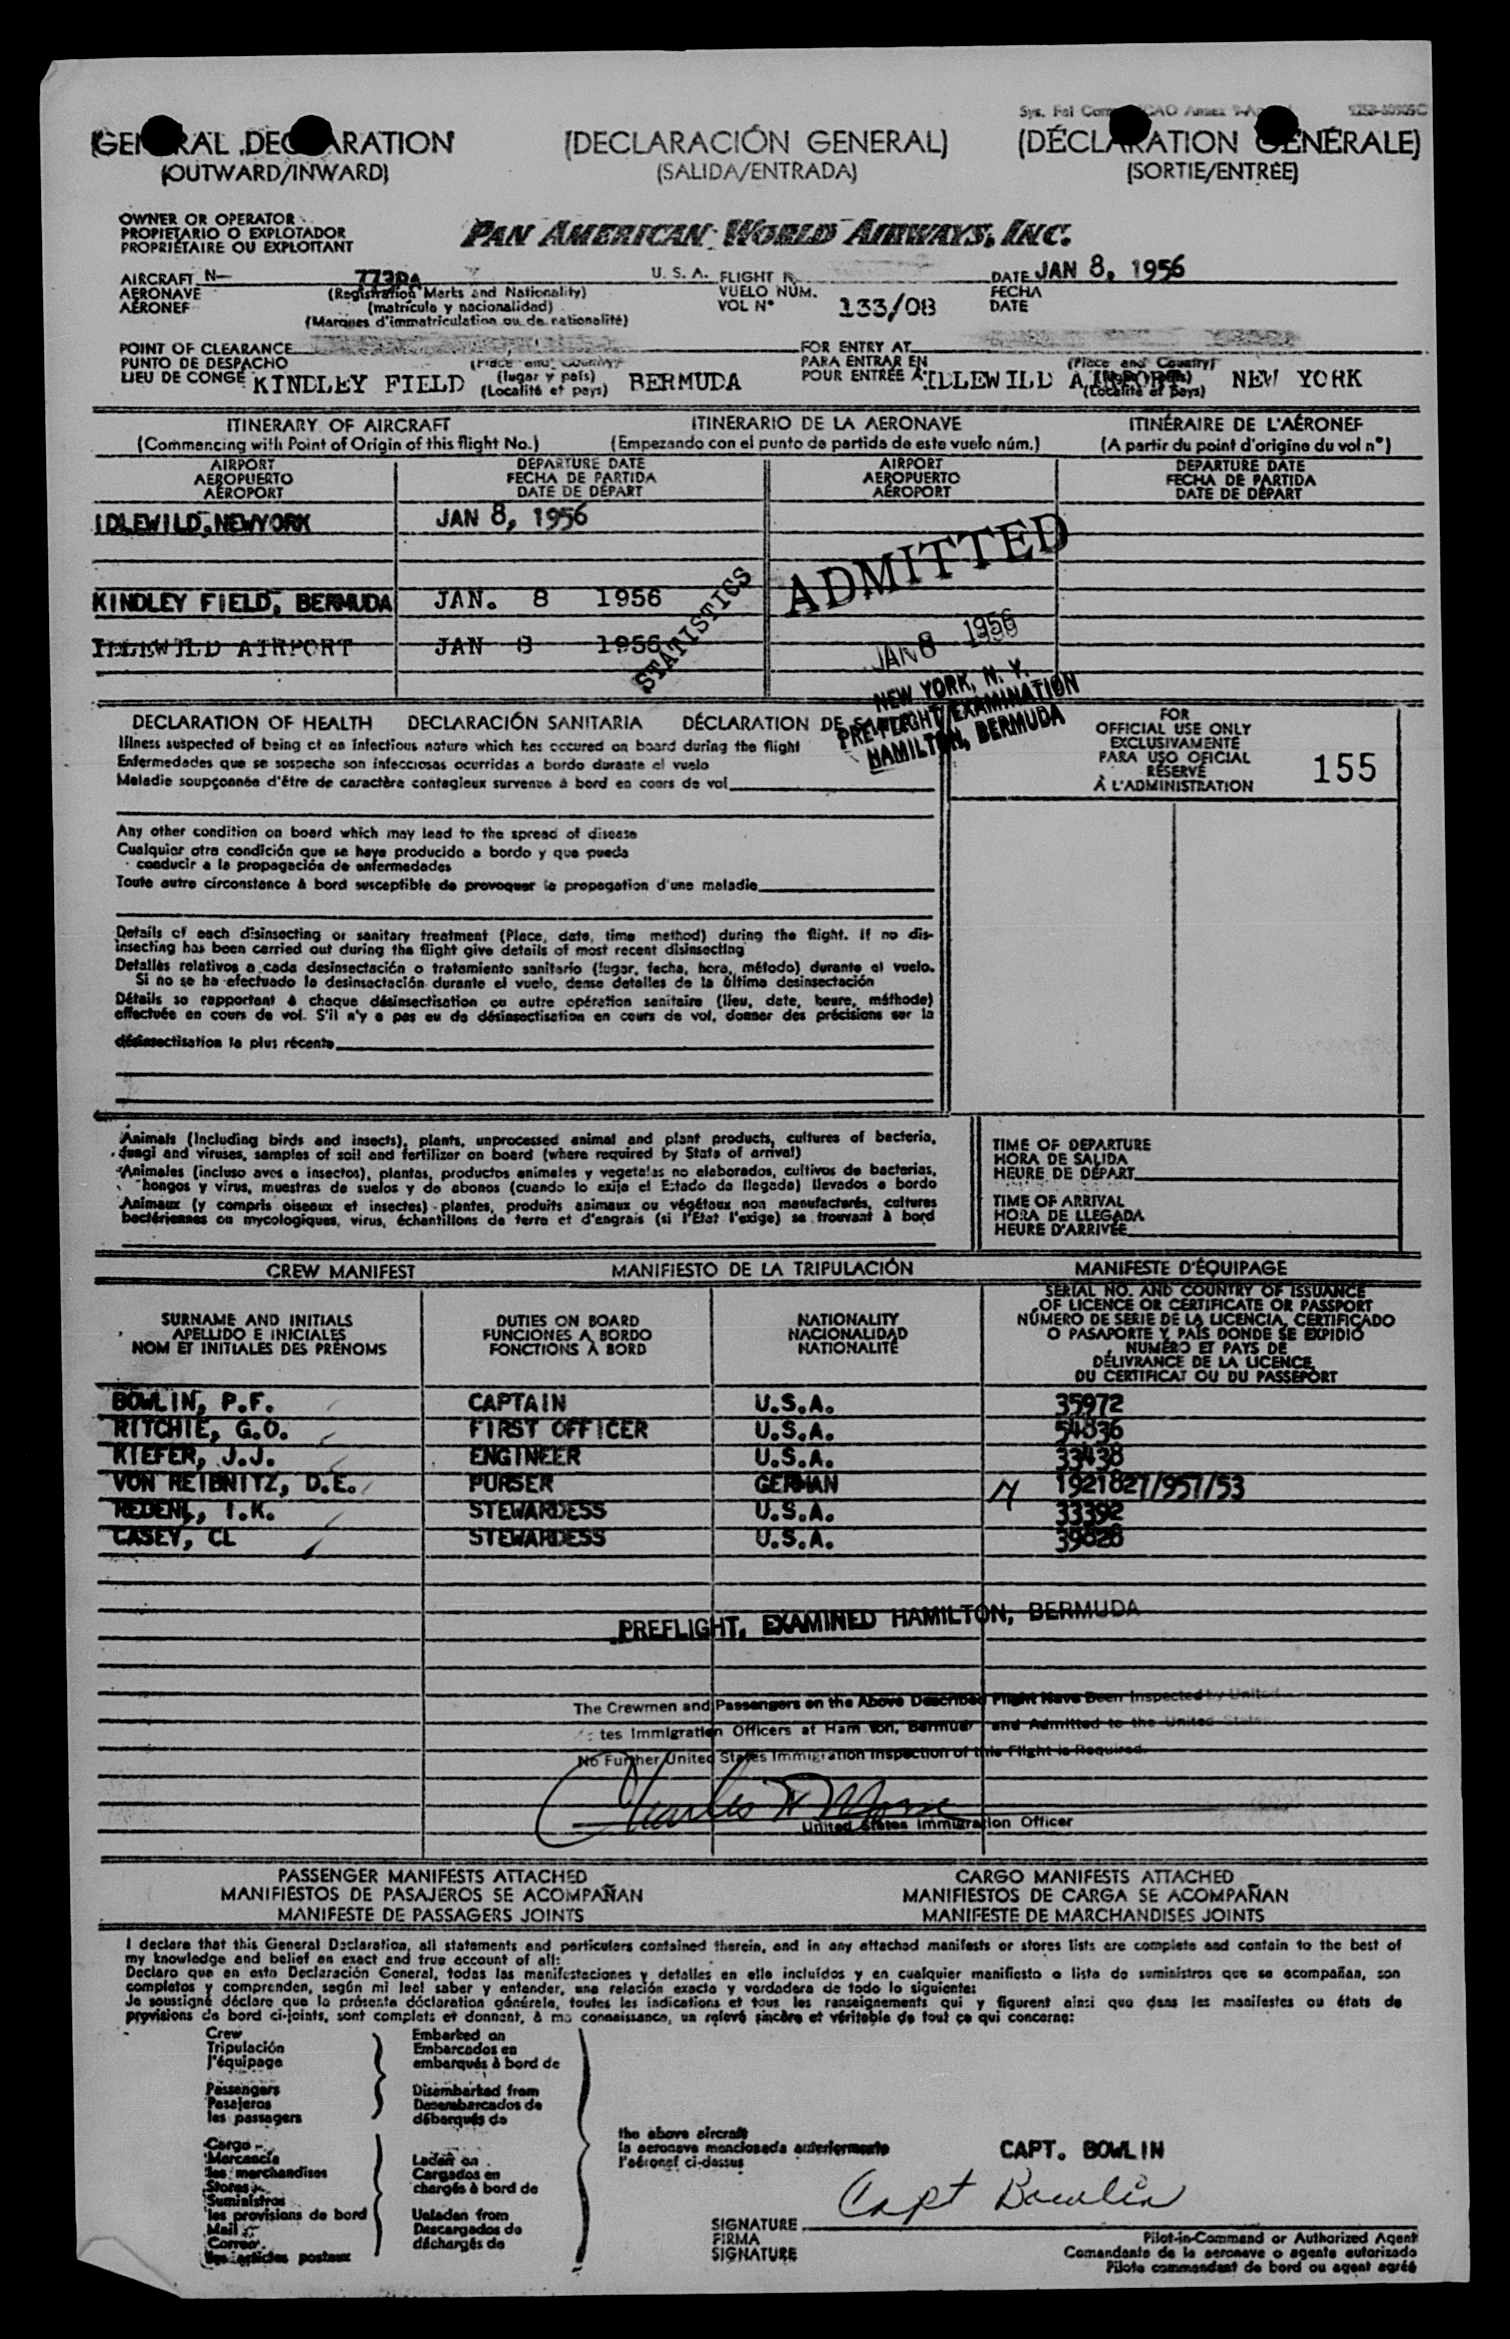 (GENERAL DECLARATION
(OUTWARD/INWARD)
(DECLARACIÓN GENERAL)
(SALIDA/ENTRADA)
(DÉCLARATION GÉNÉRALE)
(SORTIE/ENTRÉE)
OWNER OR OPERATOR
PROPIETARIO O EXPLOTADOR
PROPRIÉTAIRE OU EXPLOITANT
PAN AMERICAN WORLD AIRWAYS, INC.
AIRCRAFT N— 773PA U. S. A.
AERONAVE
AÉRONEF
(Registration Marks and Nationality)
(matrícula y nacionalidad)
(Marques d'immatriculation ou de nationalité)
FLIGHT N
VUELO NÚM.
VOL N° 133/08
DATE JAN 8, 1956
FECHA
DATE
POINT OF CLEARANCE
PUNTO DE DESPACHO
LIEU DE CONGÉ KINDLEY FIELD BERMUDA
(Place and Country)
(lugar y país)
(Localité et pays)
FOR ENTRY AT
PARA ENTRAR EN
POUR ENTRÉE A IDLEWILD AIRPORT NEW YORK
(Place and Country)
(Localité et pays)
ITINERARY OF AIRCRAFT ITINERARIO DE LA AERONAVE ITINÉRAIRE DE L'AÉRONEF
(Commencing with Point of Origin of this flight No.) (Empezando con el punto de partida de este vuelo núm.) (A partir du point d'origine du vol n°)
AIRPORT DEPARTURE DATE AIRPORT DEPARTURE DATE
AEROPUERTO FECHA DE PARTIDA AEROPUERTO FECHA DE PARTIDA
AÉROPORT DATE DE DÉPART AÉROPORT DATE DE DÉPART
IDLEWILD, NEWYORK JAN 8, 1956
KINDLEY FIELD, BERMUDA JAN. 8 1956
IDLEWILD AIRPORT JAN 8 1956
STATISTICS
ADMITTED
JAN 8 1956
NEW YORK, N. Y.
PREFLIGHT/EXAMINATION
HAMILTON, BERMUDA
DECLARATION OF HEALTH DECLARACIÓN SANITARIA DÉCLARATION DE
Illness suspected of being of an infectious nature which has occured on board during the flight
Enfermedades que se sospecha son infecciosas ocurridas a bordo durante el vuelo
Maladie soupçonnée d'être de caractère contagieux survenue à bord en cours de vol
FOR
OFFICIAL USE ONLY
EXCLUSIVAMENTE
PARA USO OFICIAL
RÉSERVÉ
À L'ADMINISTRATION
155
Any other condition on board which may lead to the spread of disease
Cualquier otra condición que se haya producido a bordo y que pueda
conducir a la propagación de enfermedades
Toute autre circonstance à bord susceptible de provoquer la propagation d'une maladie
Details of each disinsecting or sanitary treatment (Place, date, time method) during the flight. If no dis-
insecting has been carried out during the flight give details of most recent disinsecting
Detalles relativos a cada desinsectación o tratamiento sanitario (lugar, fecha, hora, método) durante el vuelo.
Si no se ha efectuado la desinsectación durante el vuelo, dense detalles de la última desinsectación
Détails se rapportant à chaque désinsectisation ou autre opération sanitaire (lieu, date, heure, méthode)
effectuée en cours de vol. S'il n'y a pas eu de désinsectisation en cours de vol, donner des précisions sur la
désinsectisation la plus récente
Animals (including birds and insects), plants, unprocessed animal and plant products, cultures of bacteria,
fungi and viruses, samples of soil and fertilizer on board (where required by State of arrival)
Animales (incluso aves e insectos), plantas, productos animales y vegetales no elaborados, cultivos de bacterias,
hongos y virus, muestras de suelos y de abonos (cuando lo exija el Estado de llegada) llevados a bordo
Animaux (y compris oiseaux et insectes) plantes, produits animaux ou végétaux non manufacturés, cultures
bactériennes ou mycologiques, virus, échantillons de terre et d'engrais (si l'Etat l'exige) se trouvant à bord
TIME OF DEPARTURE
HORA DE SALIDA
HEURE DE DÉPART
TIME OF ARRIVAL
HORA DE LLEGADA
HEURE D'ARRIVÉE
CREW MANIFEST MANIFIESTO DE LA TRIPULACIÓN MANIFESTE D'ÉQUIPAGE
SURNAME AND INITIALS
APELLIDO E INICIALES
NOM ET INITIALES DES PRÉNOMS
DUTIES ON BOARD
FUNCIONES A BORDO
FONCTIONS À BORD
NATIONALITY
NACIONALIDAD
NATIONALITÉ
SERIAL NO. AND COUNTRY OF ISSUANCE
OF LICENCE OR CERTIFICATE OR PASSPORT
NÚMERO DE SERIE DE LA LICENCIA, CERTIFICADO
O PASAPORTE Y PAÍS DONDE SE EXPIDIÓ
NUMÉRO ET PAYS DE
DÉLIVRANCE DE LA LICENCE,
DU CERTIFICAT OU DU PASSEPORT
BOWLIN, P.F. CAPTAIN U.S.A. 35972
RITCHIE, G.O. FIRST OFFICER U.S.A. 54836
KIEFER, J.J. ENGINEER U.S.A. 33438
VON REIBNITZ, D.E. PURSER GERMAN 1921827/957/53
REDENL, I.K. STEWARDESS U.S.A. 33392
CASEY, CL STEWARDESS U.S.A. 39828
PREFLIGHT, EXAMINED HAMILTON, BERMUDA
The Crewmen and Passengers on the Above Described Flight Have Been Inspected by United
tes Immigration Officers at Ham ton, Bermuda and Admitted to the United States
No Further United States Immigration Inspection of this Flight is Required.
United States Immigration Officer
PASSENGER MANIFESTS ATTACHED
MANIFIESTOS DE PASAJEROS SE ACOMPAÑAN
MANIFESTE DE PASSAGERS JOINTS
CARGO MANIFESTS ATTACHED
MANIFIESTOS DE CARGA SE ACOMPAÑAN
MANIFESTE DE MARCHANDISES JOINTS
I declare that this General Declaration, all statements and particulars contained therein, and in any attached manifests or stores lists are complete and contain to the best of
my knowledge and belief an exact and true account of all:
Declaro que en esta Declaración General, todas las manifestaciones y detalles en ella incluídos y en cualquier manifiesto o lista de suministros que se acompañan, son
completos y comprenden, según mi leal saber y entender, una relación exacta y verdadera de todo lo siguiente:
Je soussigné déclare que la présente déclaration générale, toutes les indications et tous les renseignements qui y figurent ainsi que dans les manifestes ou états de
provisions de bord ci-joints, sont complets et donnent, à ma connaissance, un relevé sincère et véritable de tout ce qui concerne:
Crew
Tripulación
l'équipage
Passengers
Pasajeros
les passagers
Cargo
Mercancía
les marchandises
Stores
Suministros
les provisions de bord
Mail
Correo
les articles postaux
Embarked on
Embarcados en
embarqués à bord de
Disembarked from
Desembarcados de
débarqués de
Laden on
Cargados en
chargés à bord de
Unladen from
Descargados de
déchargés de
the above aircraft
la aeronave mencionada anteriormente
l'aéronef ci-dessus
CAPT. BOWLIN
Capt Bowlin
SIGNATURE
FIRMA
SIGNATURE
Pilot-in-Command or Authorized Agent
Comandante de la aeronave o agente autorizado
Pilote commandant de bord ou agent agréé